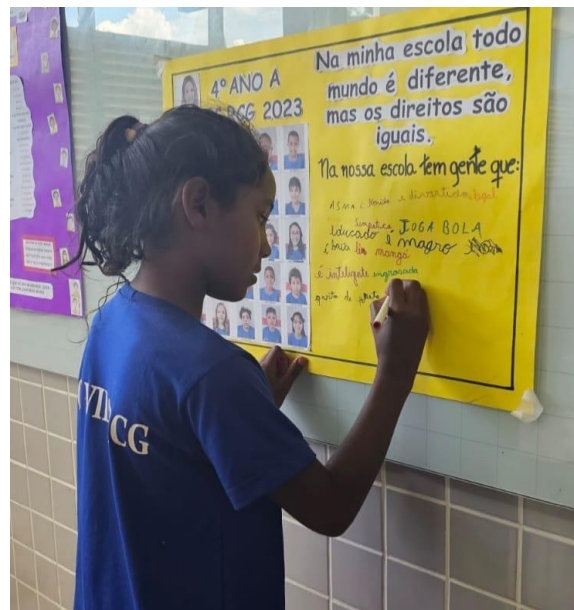 4º ANO A
CG 2023
Na minha escola todo
mundo é diferente,
mas os direitos são
iguais.
Na nossa escola tem gente que:
é tímido e divertido legal
simpática JOGA BOLA
Educado é magro
lê mangá
é inteligente engraçada
gosta de
VI
CG